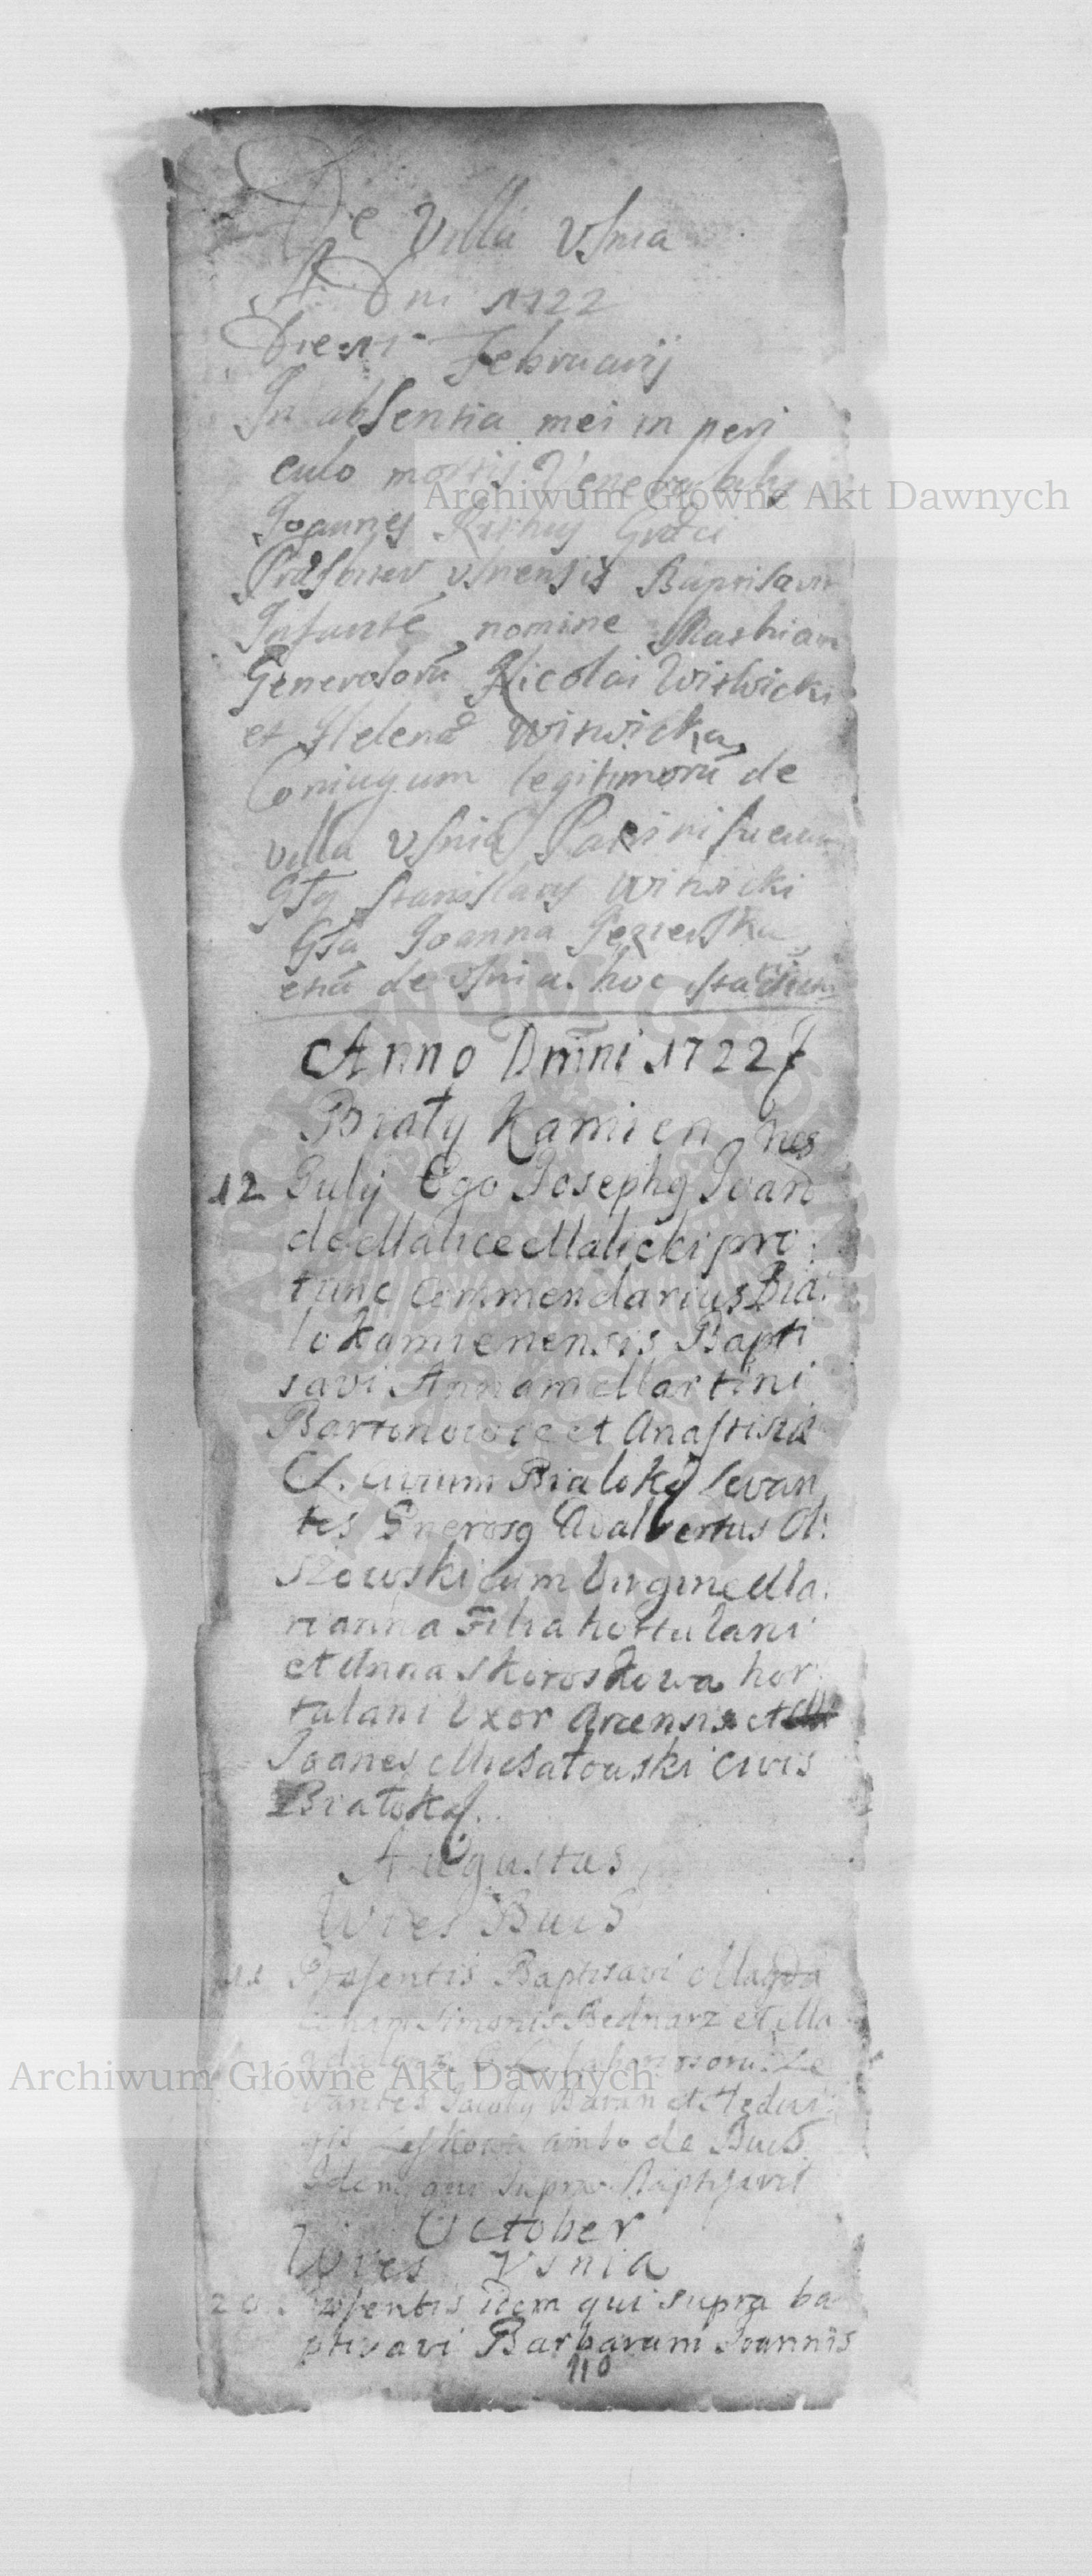 De Villa Usnia
A. Dni 1722
Die Februarij
In absentia mei in peri
culo mortis Venerabilis
Joannes Graeci
Praesbiter Usnensis Baptisavit
Infantē nomine Mathiam
Generosorū Nicolai Witwicki
et Helenae Witwicka
Coniugum legitimorū de
villa Usnia Patrini fuerunt
Gsg Stanislaus Witwicki
Gsa Joanna
etiā de Usnia. hoc
Anno Dmni 1722
Biały Kamien
nes
12 Julij Ego Josephg Joan
de Malice Malicki pro
tunc Commendarius Bia:
lokamienensis Bapti
savi Annam Martini
Bartonowice et Anastisiae
C. L. Civium Bialoka levan
tes Gnerosg Adalbertus Ol:
szowski cum Virgine Ma:
rianna Filia hortulani
et Anna Skoroszowa hor
tulani Uxor Arcensis et
Joanes civis
Białoka.
Augustus
Wies Buis
Praesentis Baptisavi Magda
lenam Simonis Bednarz et Ma
gdalena C. L. laboriosorū. Le
vantes Jacobg Baran et Hedvi
gis ambo de Buis
Idem qui supra Baptisavit
October
Wies Usnia
20. Praesentis idem qui supra ba
ptisavi Barbaram Joannis
110
Archiwum Główne Akt Dawnych
Archiwum Główne Akt Dawnych